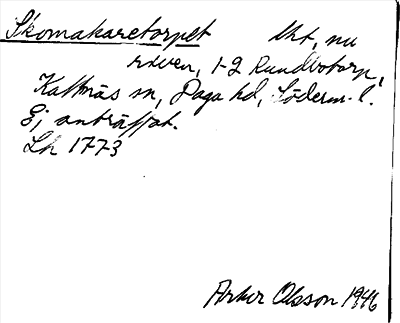 Skomakaretorpet Lht, nu
riven, 1-2 Rundbotorp,
Kattnäs sn, Daga hd, Söderm. l.
Ej anträffat.
Lh 1773
Artur Olsson 1946